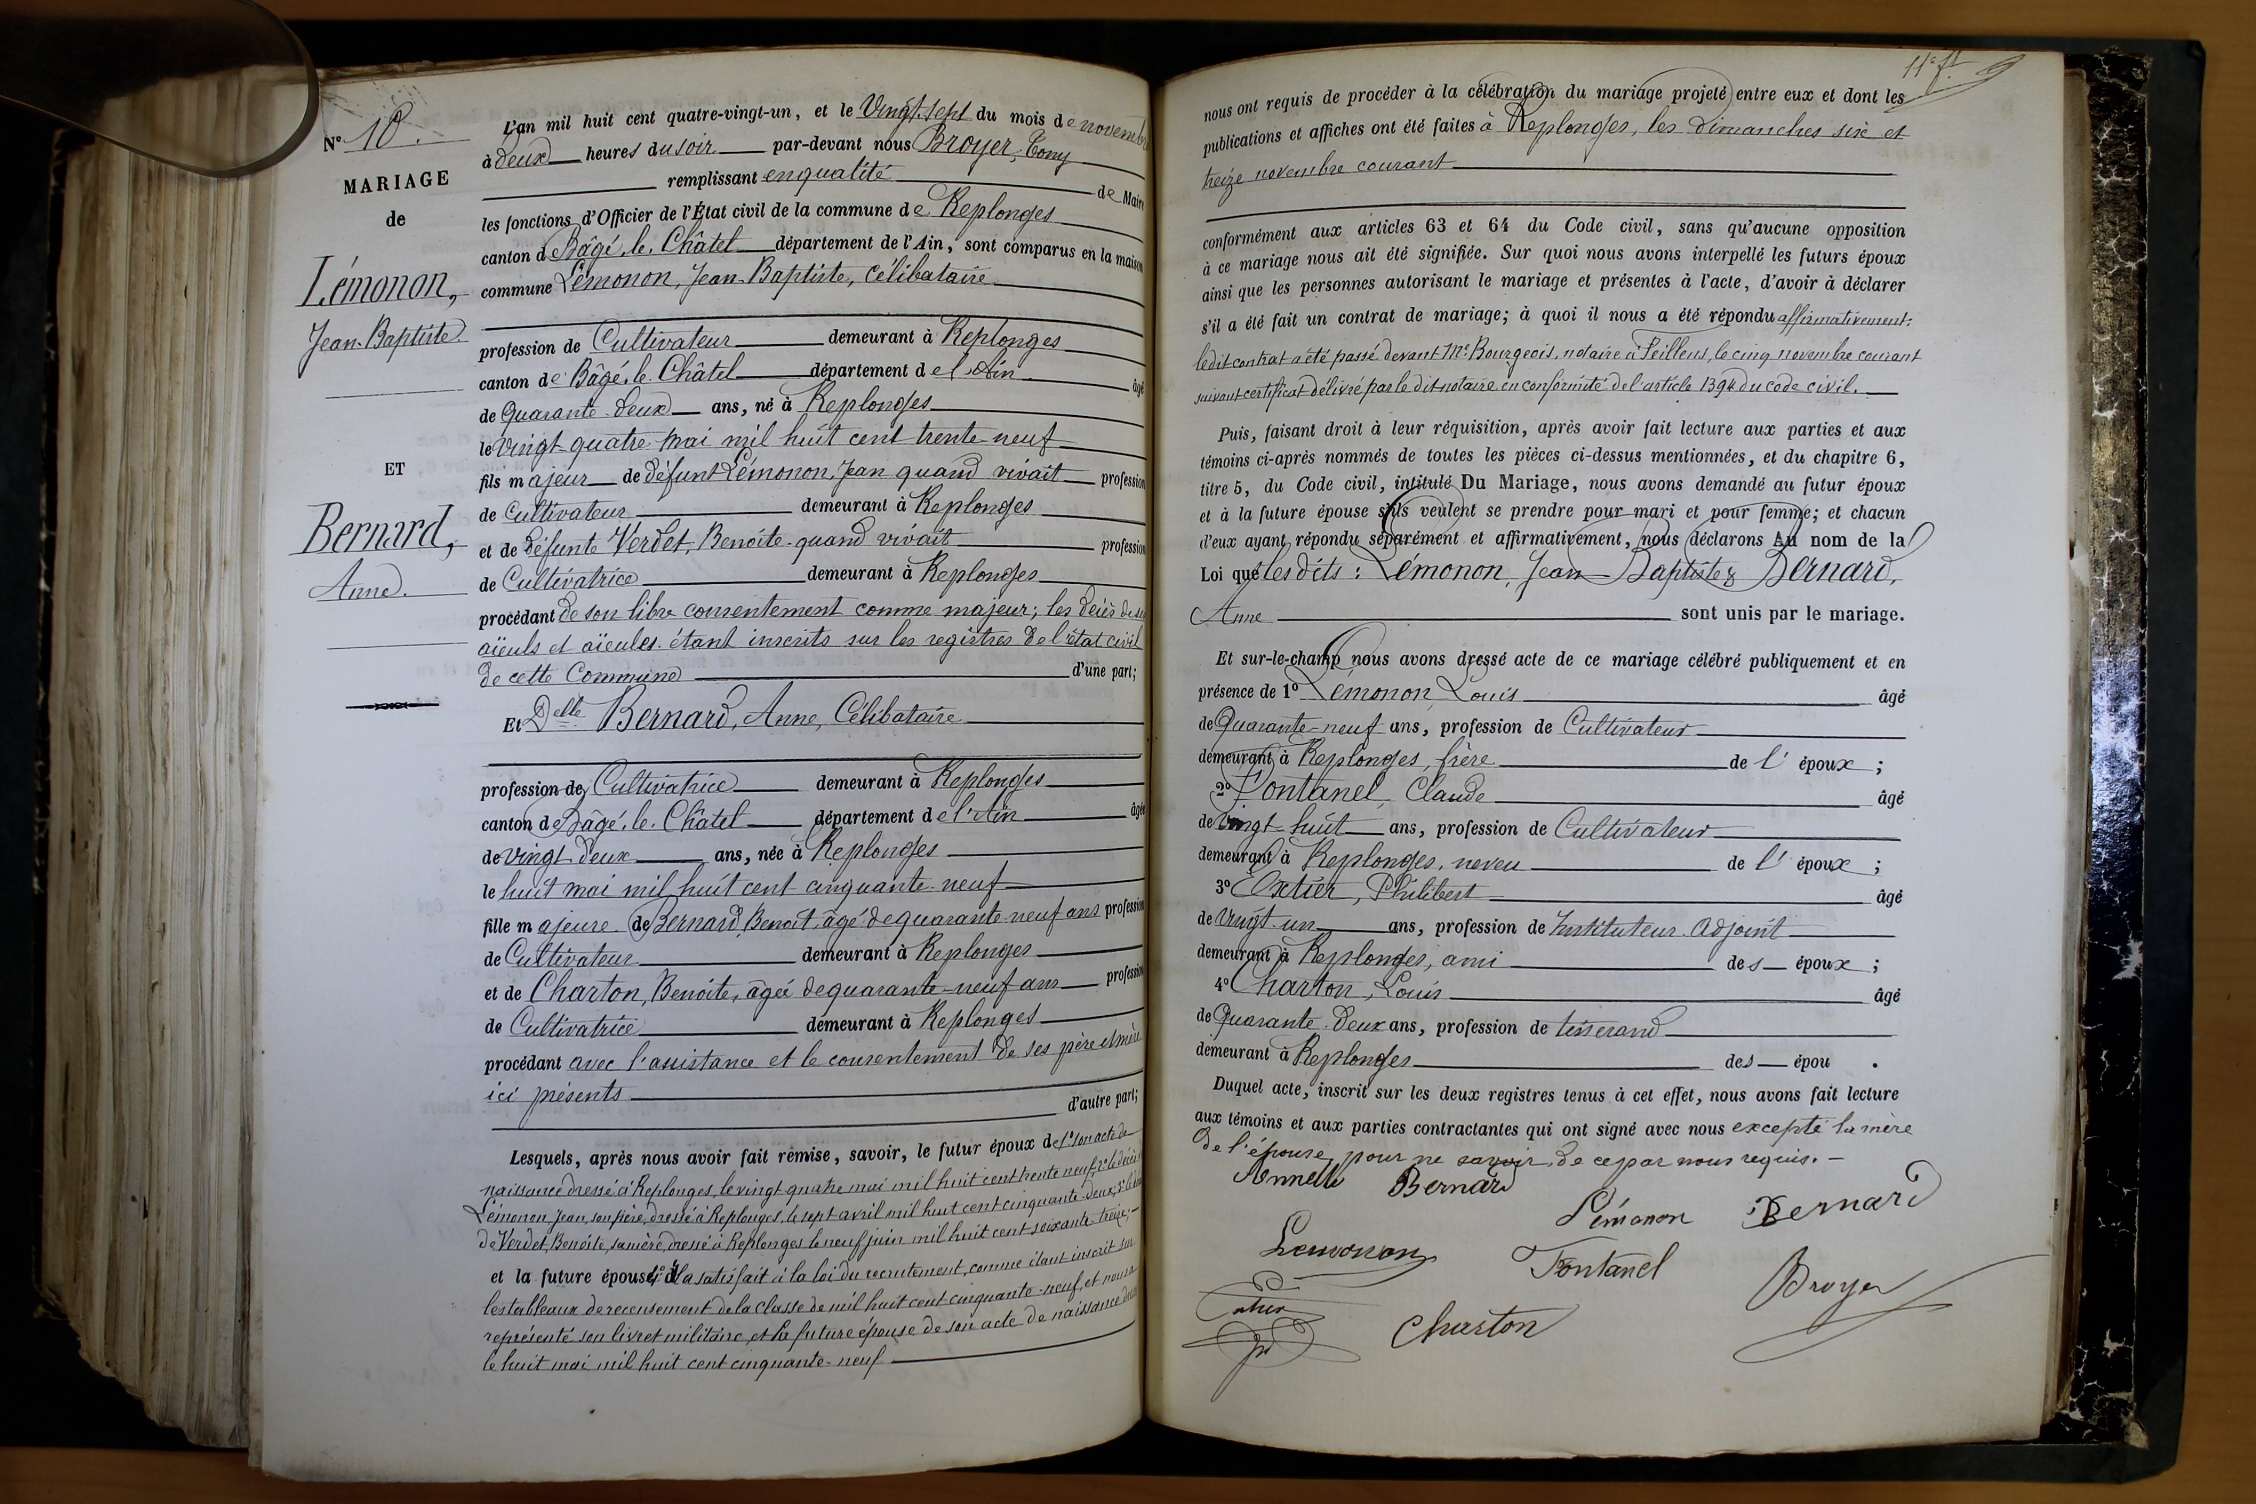 Nº 18.
MARIAGE
de
Lémonon,
Jean-Baptiste
ET
Bernard,
Anne.
L'an mil huit cent quatre-vingt-un, et le Vingt-sept du mois de novembre
à deux heures du soir par-devant nous Broyer, Tony
remplissant en qualité de Maire
les fonctions d'Officier de l'État civil de la commune de Replonges
canton d Bâgé-le-Châtel département de l'Ain, sont comparus en la maison
commune Lémonon, Jean-Baptiste, Célibataire
profession de Cultivateur demeurant à Replonges
canton de Bâgé-le-Châtel département de l'Ain âgé
de Quarante-deux ans, né à Replonges
le Vingt-quatre mai mil huit cent trente-neuf
fils majeur de défunt Lémonon, Jean quand vivait profession
de Cultivateur demeurant à Replonges
et de défunte Verdet, Benoîte quand vivait profession
de Cultivatrice demeurant à Replonges
procédant de son libre consentement comme majeur; les décès de ses
aïeuls et aïeules étant inscrits sur les registres de l'état civil
de cette Commune d'une part;
Et Delle Bernard, Anne, Célibataire
profession de Cultivatrice demeurant à Replonges
canton de Bâgé-le-Châtel département de l'Ain âgée
de vingt-deux ans, née à Replonges
le huit mai mil huit cent cinquante-neuf
fille majeure de Bernard Benoît, âgé de quarante-neuf ans profession
de Cultivateur demeurant à Replonges
et de Charton, Benoîte, âgée de quarante-neuf ans profession
de Cultivatrice demeurant à Replonges
procédant avec l'assistance et le consentement de ses père et mère
ici présents
d'autre part;
Lesquels, après nous avoir fait remise, savoir, le futur époux de 1º son acte de
naissance dressé à Replonges, le vingt-quatre mai mil huit cent trente-neuf, 2º le décès
Lémonon, Jean, son père, dressé à Replonges, le sept avril mil huit cent cinquante-deux; 3º
de Verdet, Benoîte, sa mère, dressé à Replonges le neuf juin mil huit cent soixante-treize;
et la future épouse 4º d a satisfait à la loi du recrutement, comme étant inscrit sur
les tableaux de recensement de la classe de mil huit cent cinquante-neuf, et nous a
représenté son livret militaire, et la future épouse de son acte de naissance
le huit mai mil huit cent cinquante-neuf
11e ft
nous ont requis de procéder à la célébration du mariage projeté entre eux et dont les
publications et affiches ont été faites à Replonges, les dimanches six et
treize novembre courant
conformément aux articles 63 et 64 du Code civil, sans qu'aucune opposition
à ce mariage nous ait été signifiée. Sur quoi nous avons interpellé les futurs époux
ainsi que les personnes autorisant le mariage et présentes à l'acte, d'avoir à déclarer
s'il a été fait un contrat de mariage; à quoi il nous a été répondu affirmativement:
ledit contrat a été passé devant Me Bourgeois, notaire à Feillens, le cinq novembre courant
suivant certificat délivré par le dit notaire en conformité de l'article 1394 du code civil.
Puis, faisant droit à leur réquisition, après avoir fait lecture aux parties et aux
témoins ci-après nommés de toutes les pièces ci-dessus mentionnées, et du chapitre 6,
titre 5, du Code civil, intitulé Du Mariage, nous avons demandé au futur époux
et à la future épouse s'ils veulent se prendre pour mari et pour femme; et chacun
d'eux ayant répondu séparément et affirmativement, nous déclarons Au nom de la
Loi que les dits: Lémonon, Jean-Baptiste & Bernard,
Anne sont unis par le mariage.
Et sur-le-champ nous avons dressé acte de ce mariage célébré publiquement et en
présence de 1º Lémonon, Louis âgé
de Quarante-neuf ans, profession de Cultivateur
demeurant à Replonges, frère de l' époux;
2º Fontanel, Claude âgé
de vingt-huit ans, profession de Cultivateur
demeurant à Replonges, neveu de l' époux;
3º Philibert âgé
de vingt-un ans, profession de Instituteur adjoint
demeurant à Replonges, ami des époux;
4º Charton, Louis âgé
de Quarante-deux ans, profession de tisserand
demeurant à Replonges des épou .
Duquel acte, inscrit sur les deux registres tenus à cet effet, nous avons fait lecture
aux témoins et aux parties contractantes qui ont signé avec nous excepté la mère
de l'épouse, pour ne savoir, de ce par nous requis.
Annette Bernard
Lémonon Bernard
Lemonon Fontanel
Broyer
Charton